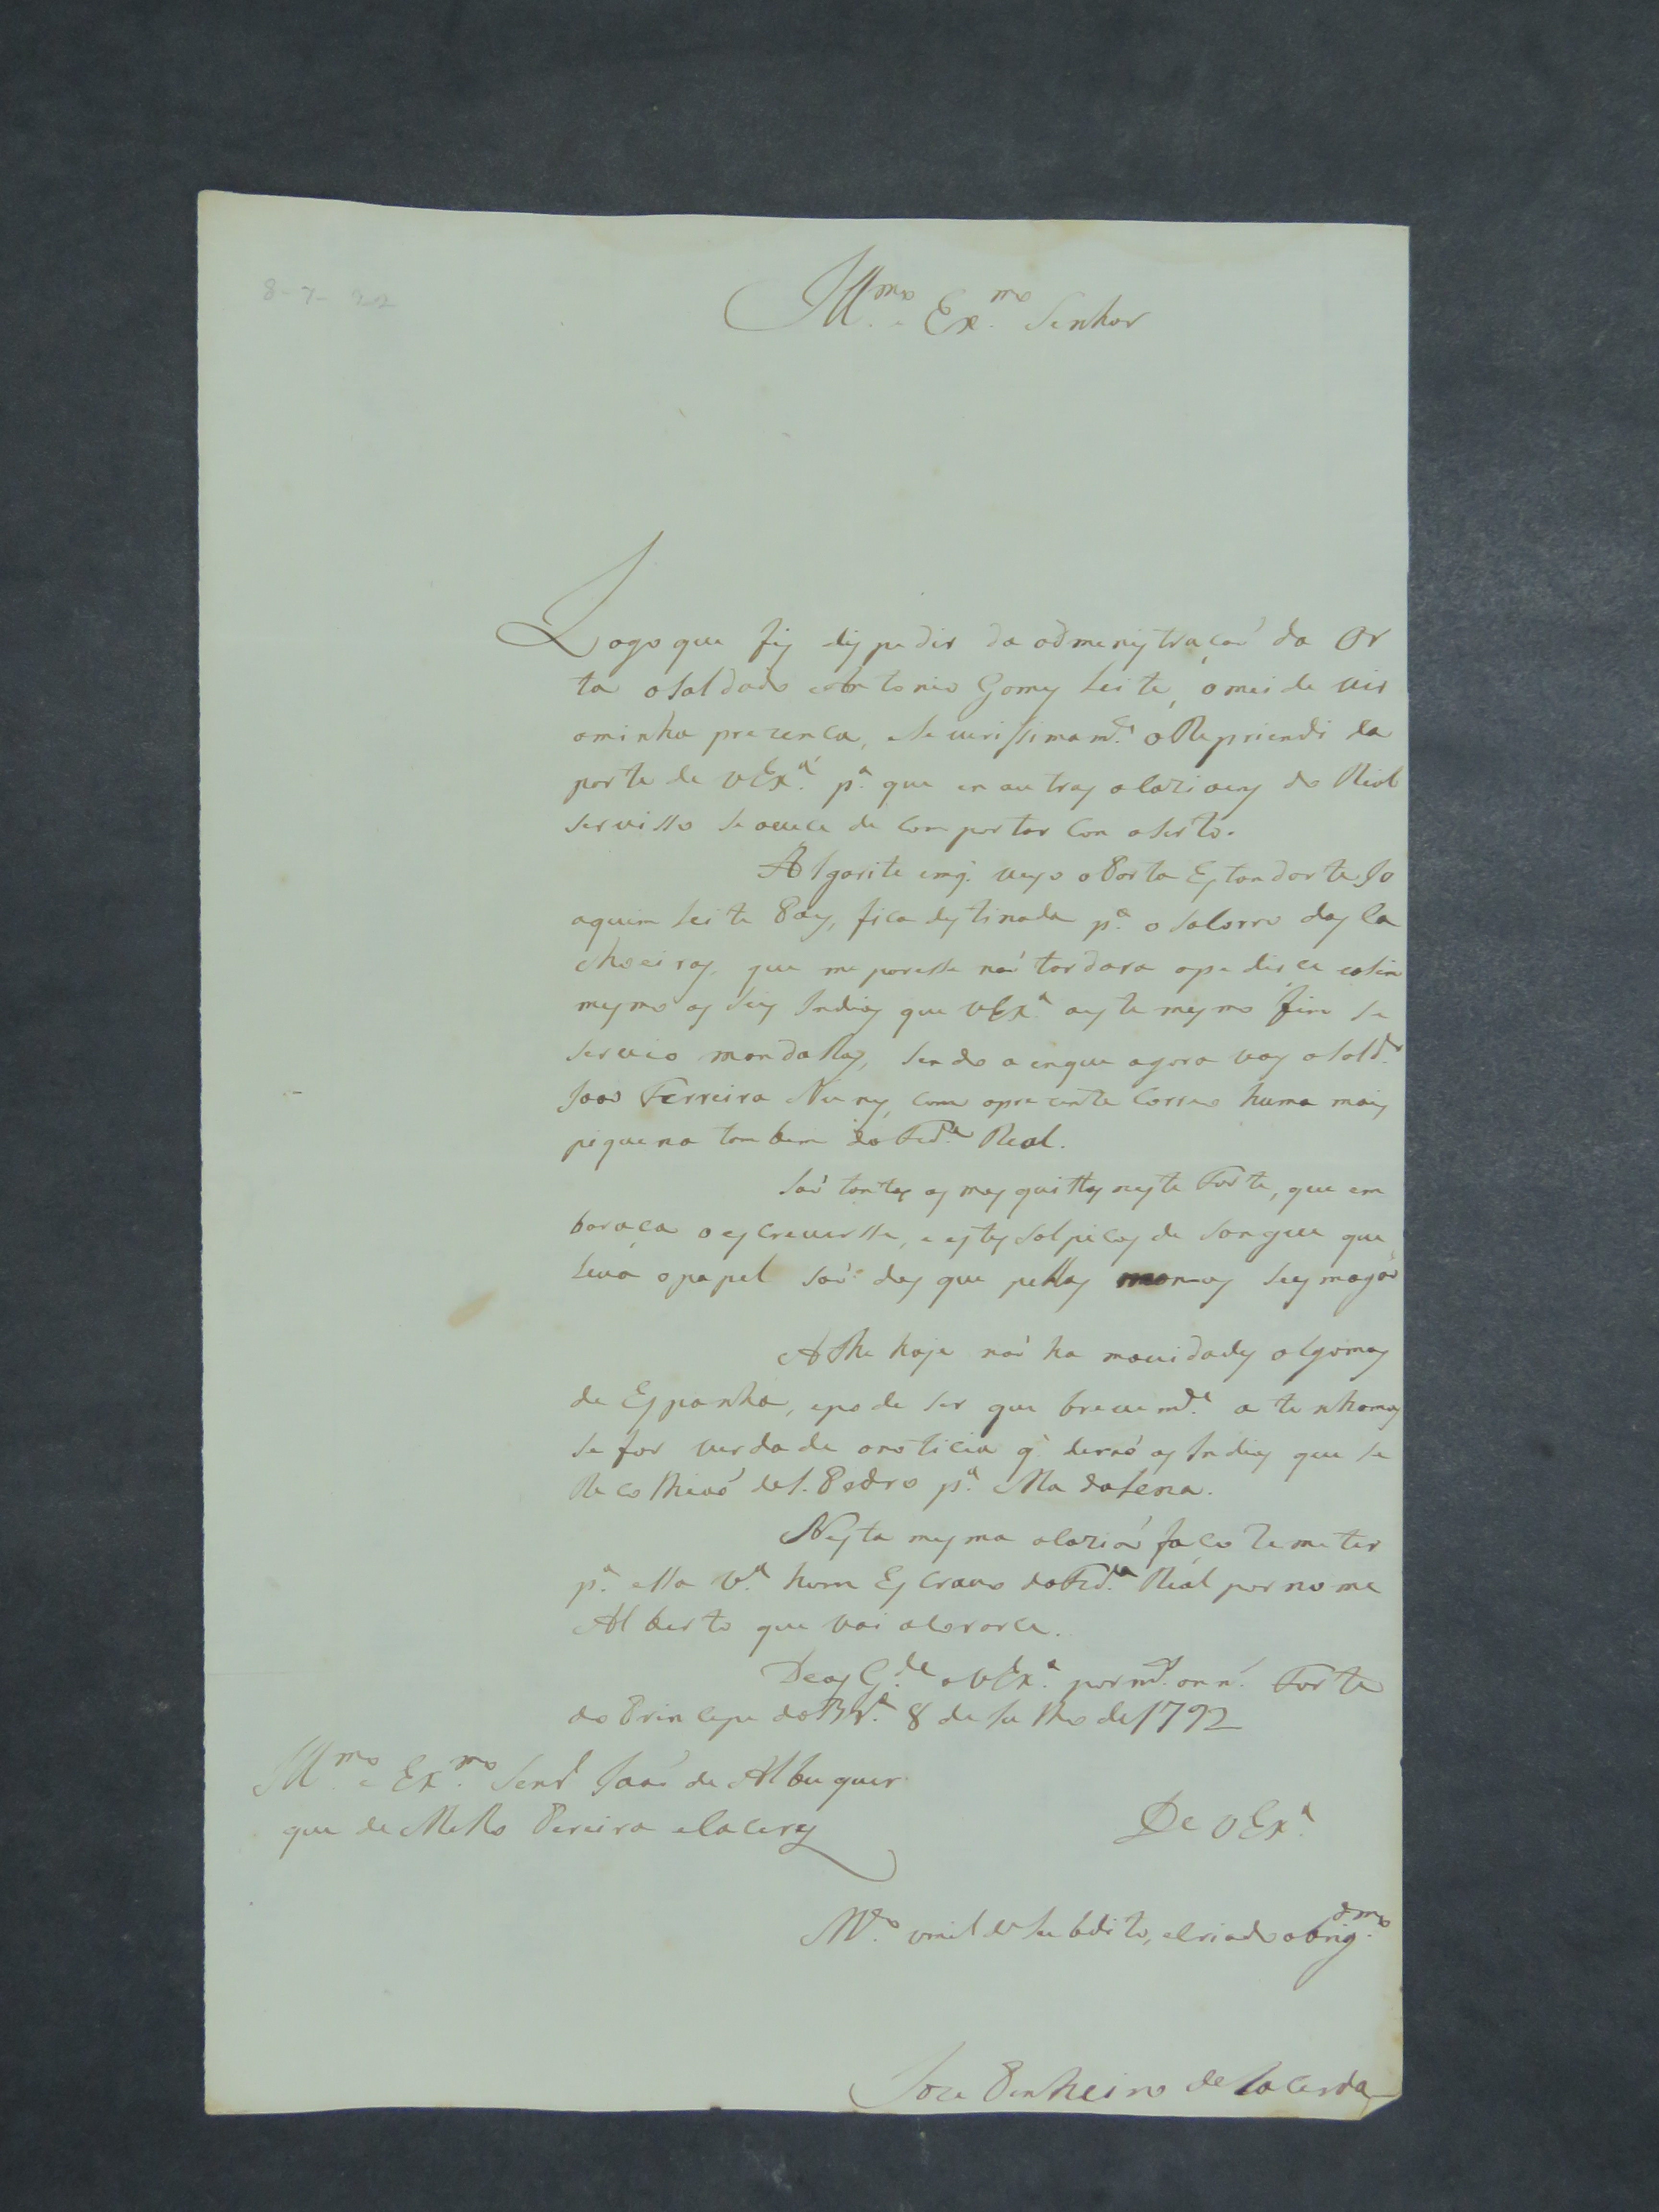 8-7-22
Ill.mo e Ex.mo Senhor
Logo que fis dispedir da admenistracaó da Or
ta o Soldado Antonio Gomes Leite, o mei de vir
a minha prezenca, e Severissimam.te o Repriendi da
parte de VEx.a p.a que en outras ocazioens do Rial
Servisso se ouvece de comportar Con aserto.
A Igarite emq. veyo o Porta Estandarte Jo
aquim Leite Paes, fica destinada p.a o Salorro das Ca
choeiras, que me poresse naó tardara a pedirce e asim
mesmo os Seis Indios que VEx.a a este mesmo fim se
Servio mandallos, Sendo a enque agora vay o Sold.o
Joaó Ferreira Nunes, com aprezente Correo huma mais
piquena tambem da Fzd.a Real.
Saó tantos os mosquittos neste Forte, que em
baraca o escreversse, e estes Salpicos de Sangue que
Levá o papel Saó dos que pellas maons Seesmagaó
Athe hoje naó ha novidades algumas
de Espanha, e pode ser que brevem.te a tenhamos
se for verdade a noticia q. deraó os Indios que se
Recolheraó de S. Pedro p.a Madalena.
Nesta mesma ocaziaó faco Remeter
p.a essa V.a hum Escravo da Fzd.a Reál por nome
Alberto que vai acurarce.
Deos G.de a VEx.a por m.s ann.s Forte
do Principe da B.ra 8 de Julho de 1792
Ill.mo e Ex.mo Senr. Joaó de Albuquer
que de Mello Pereira e Caceres
De VEx.a
M.to umilde Subdito, e Criado obrig.dmo
Joze Pinheiro de Lacerda